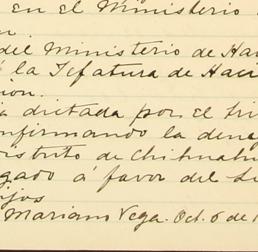 en el Ministerio
n.
del Ministerio de Hac
la Jefatura de Haci
cion.
a dictada por el Tri
onfirmando la deneg
istrito de Chihuahu
gado á favor del Li
ijos
Mariano Vega. Oct. 6 de 1